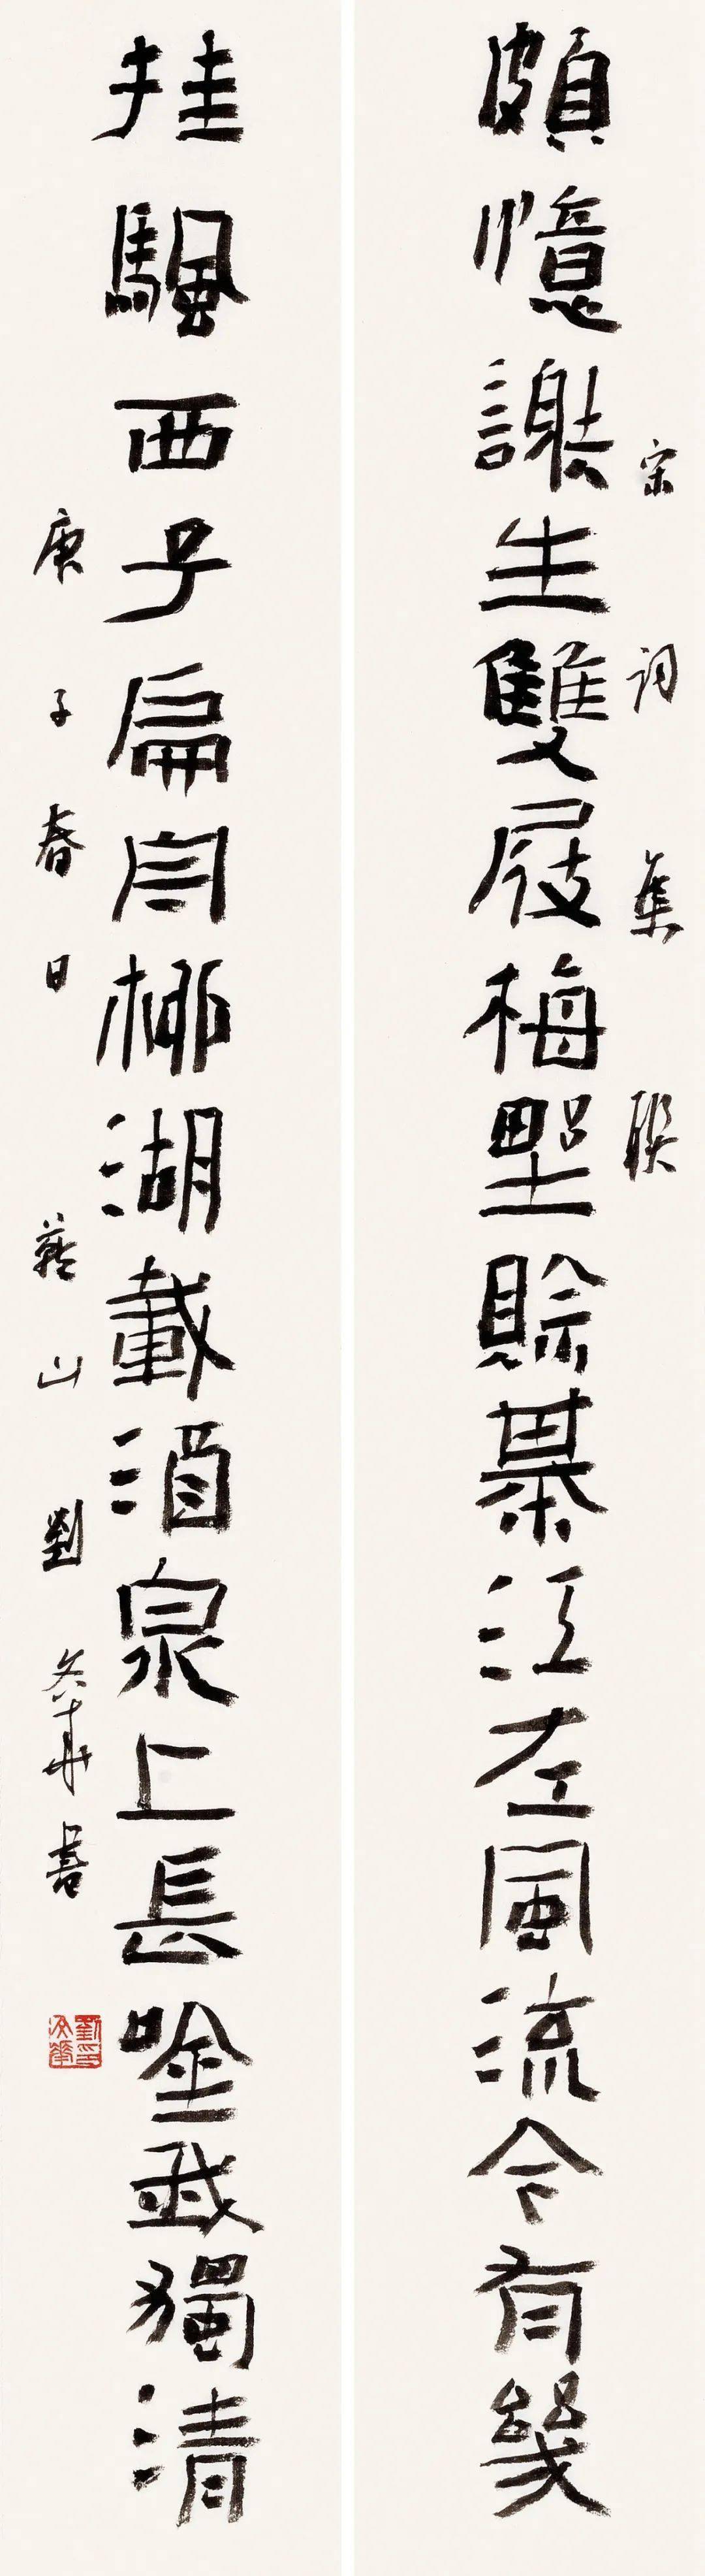 宋詞集聯
頗憶謝生雙屐梅墅賒棊江左風流今有幾
挂颿西子扁舟柳湖載酒泉上長唫我獨清
庚子春日山劉華書